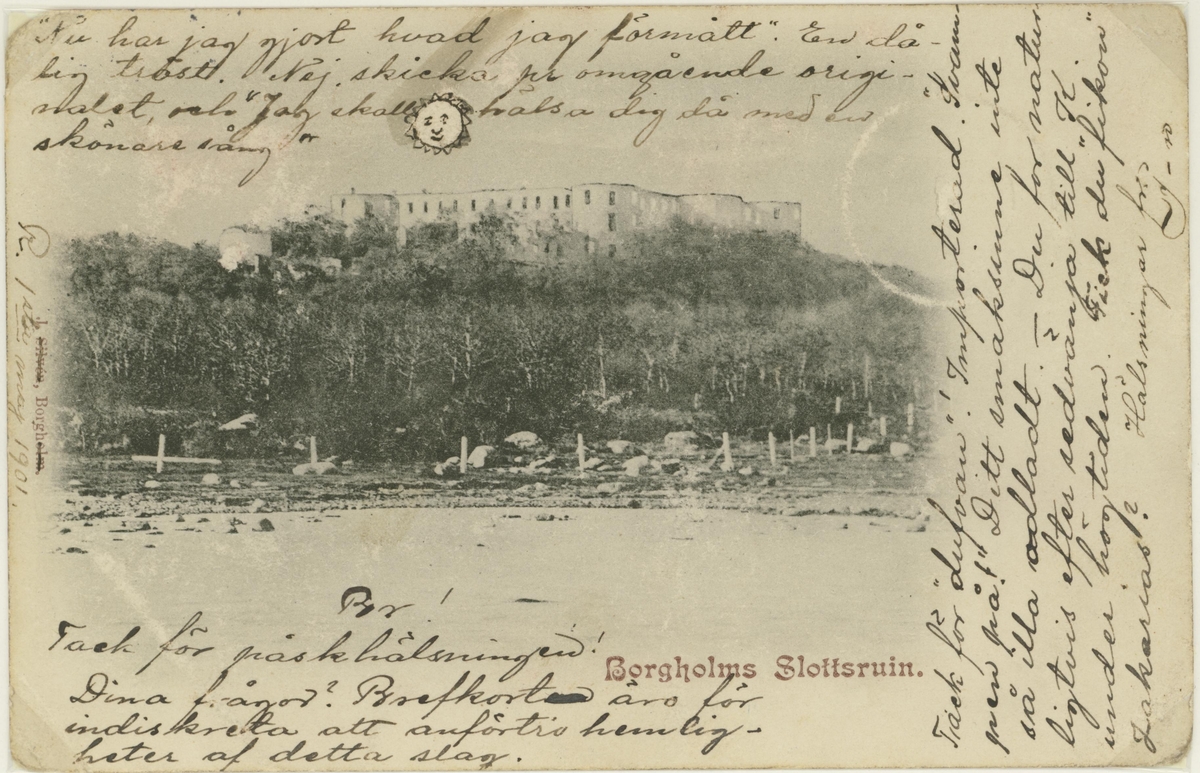 "Nu har jag gjort hvad jag förmått". En då-
lig tröst. Nej, skicka pr omgående origi-
nalet, och "Jag skall hälsa dig då med en
skönare sång"
Br!
Tack för påskhälsningen!
Dina frågor? Brefkorten äro för
indiskreta att anförtro hemlig-
heter af detta slag.
Borgholms Slottsruin.
Tack för "dufvan"! Importerad. "Svamm
pen på!" Ditt smakssinne inte
så illa odladt. - Du for natur
ligtvis efter sedvänja till K.
under högtiden. Fick du "fikon"
Zakarias? Hälsningar fr.
R. 1sta maj 1901.
Borgholm.